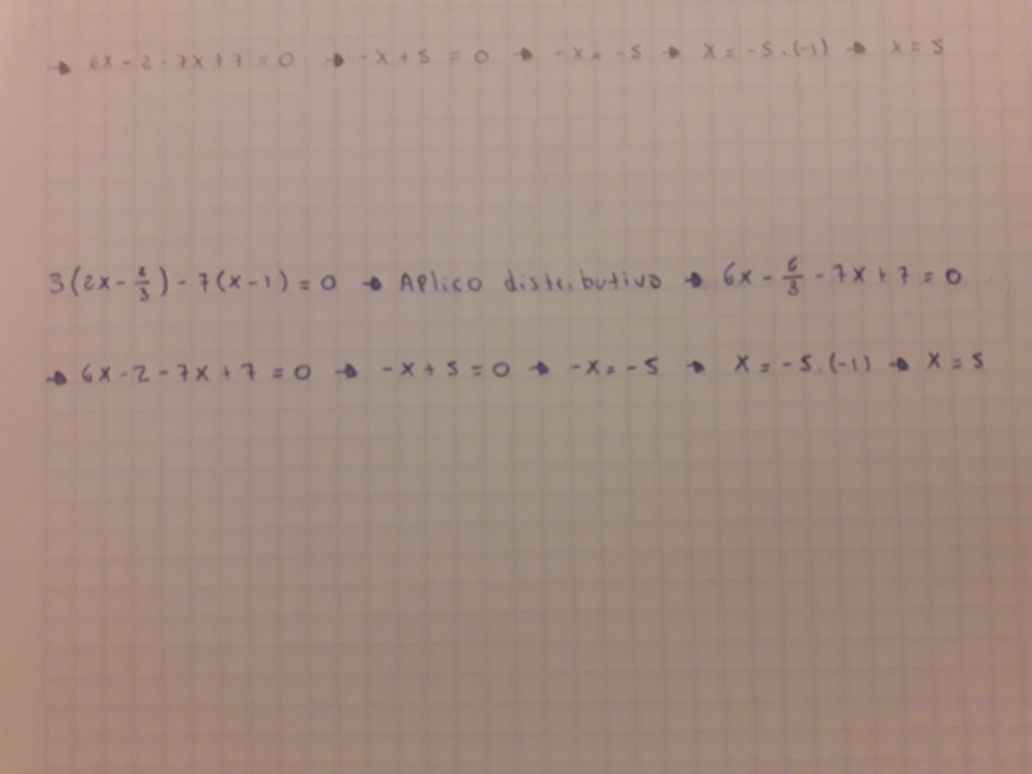 → 6x - 2 - 7x + 7 = 0 → -x + 5 = 0 → -x = -5 → x = -5.(-1) → x = 5
3(2x - 2/3) - 7(x - 1) = 0 → Aplico distributivo → 6x - 6/3 - 7x + 7 = 0
→ 6x - 2 - 7x + 7 = 0 → -x + 5 = 0 → -x = -5 → x = -5.(-1) → x = 5